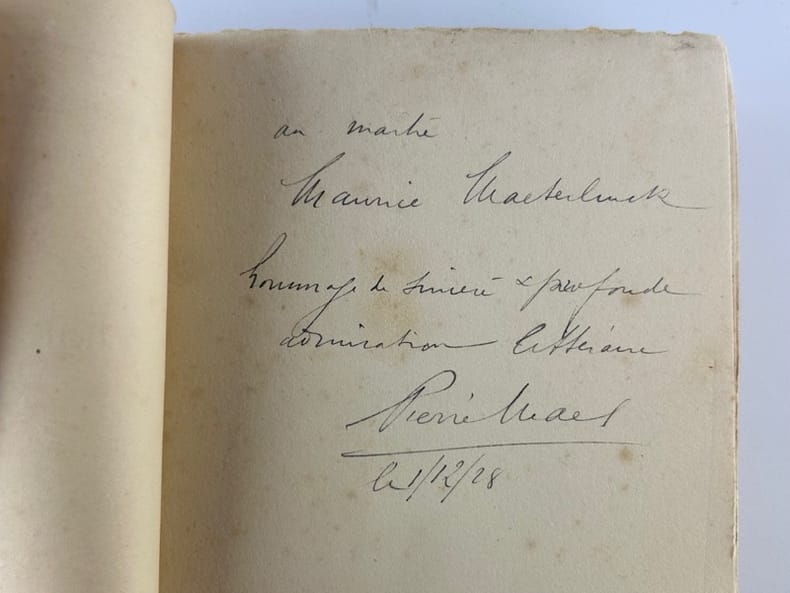 au maître
Maurice Maeterlinck
hommage de sincère & profonde
admiration littéraire
Pierre Mael
le 1/12/28